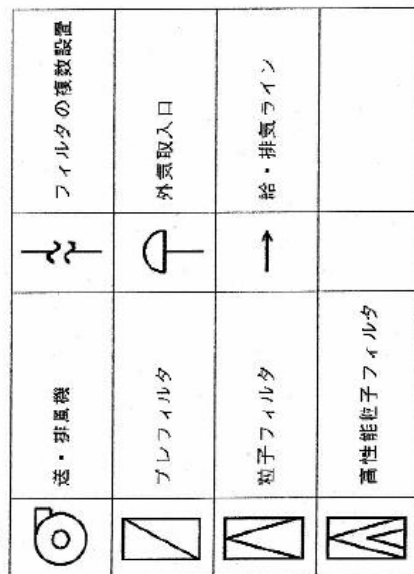 送・排風機
フィルタの複数設置
プレフィルタ
外気取入口
粒子フィルタ
給・排気ライン
高性能粒子フィルタ